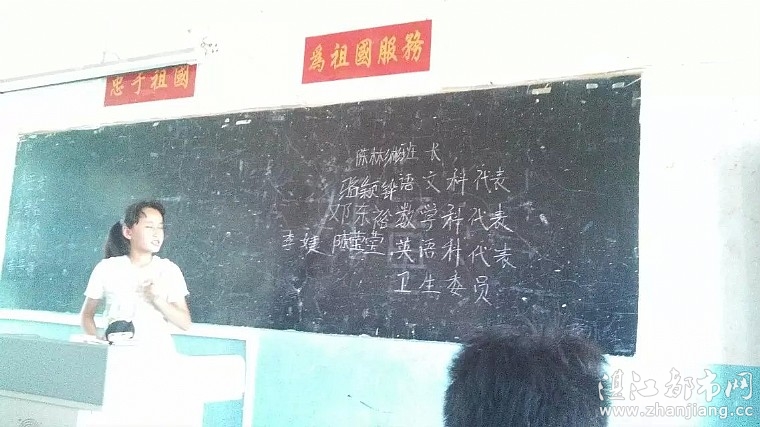 忠于祖國
爲祖國服務
陈林 班长
张颖 语文科代表
邓东裕数学科代表
李婕 陈莹莹 英语科代表
卫生委员
湛江都市网
www.zhanjiang.cc